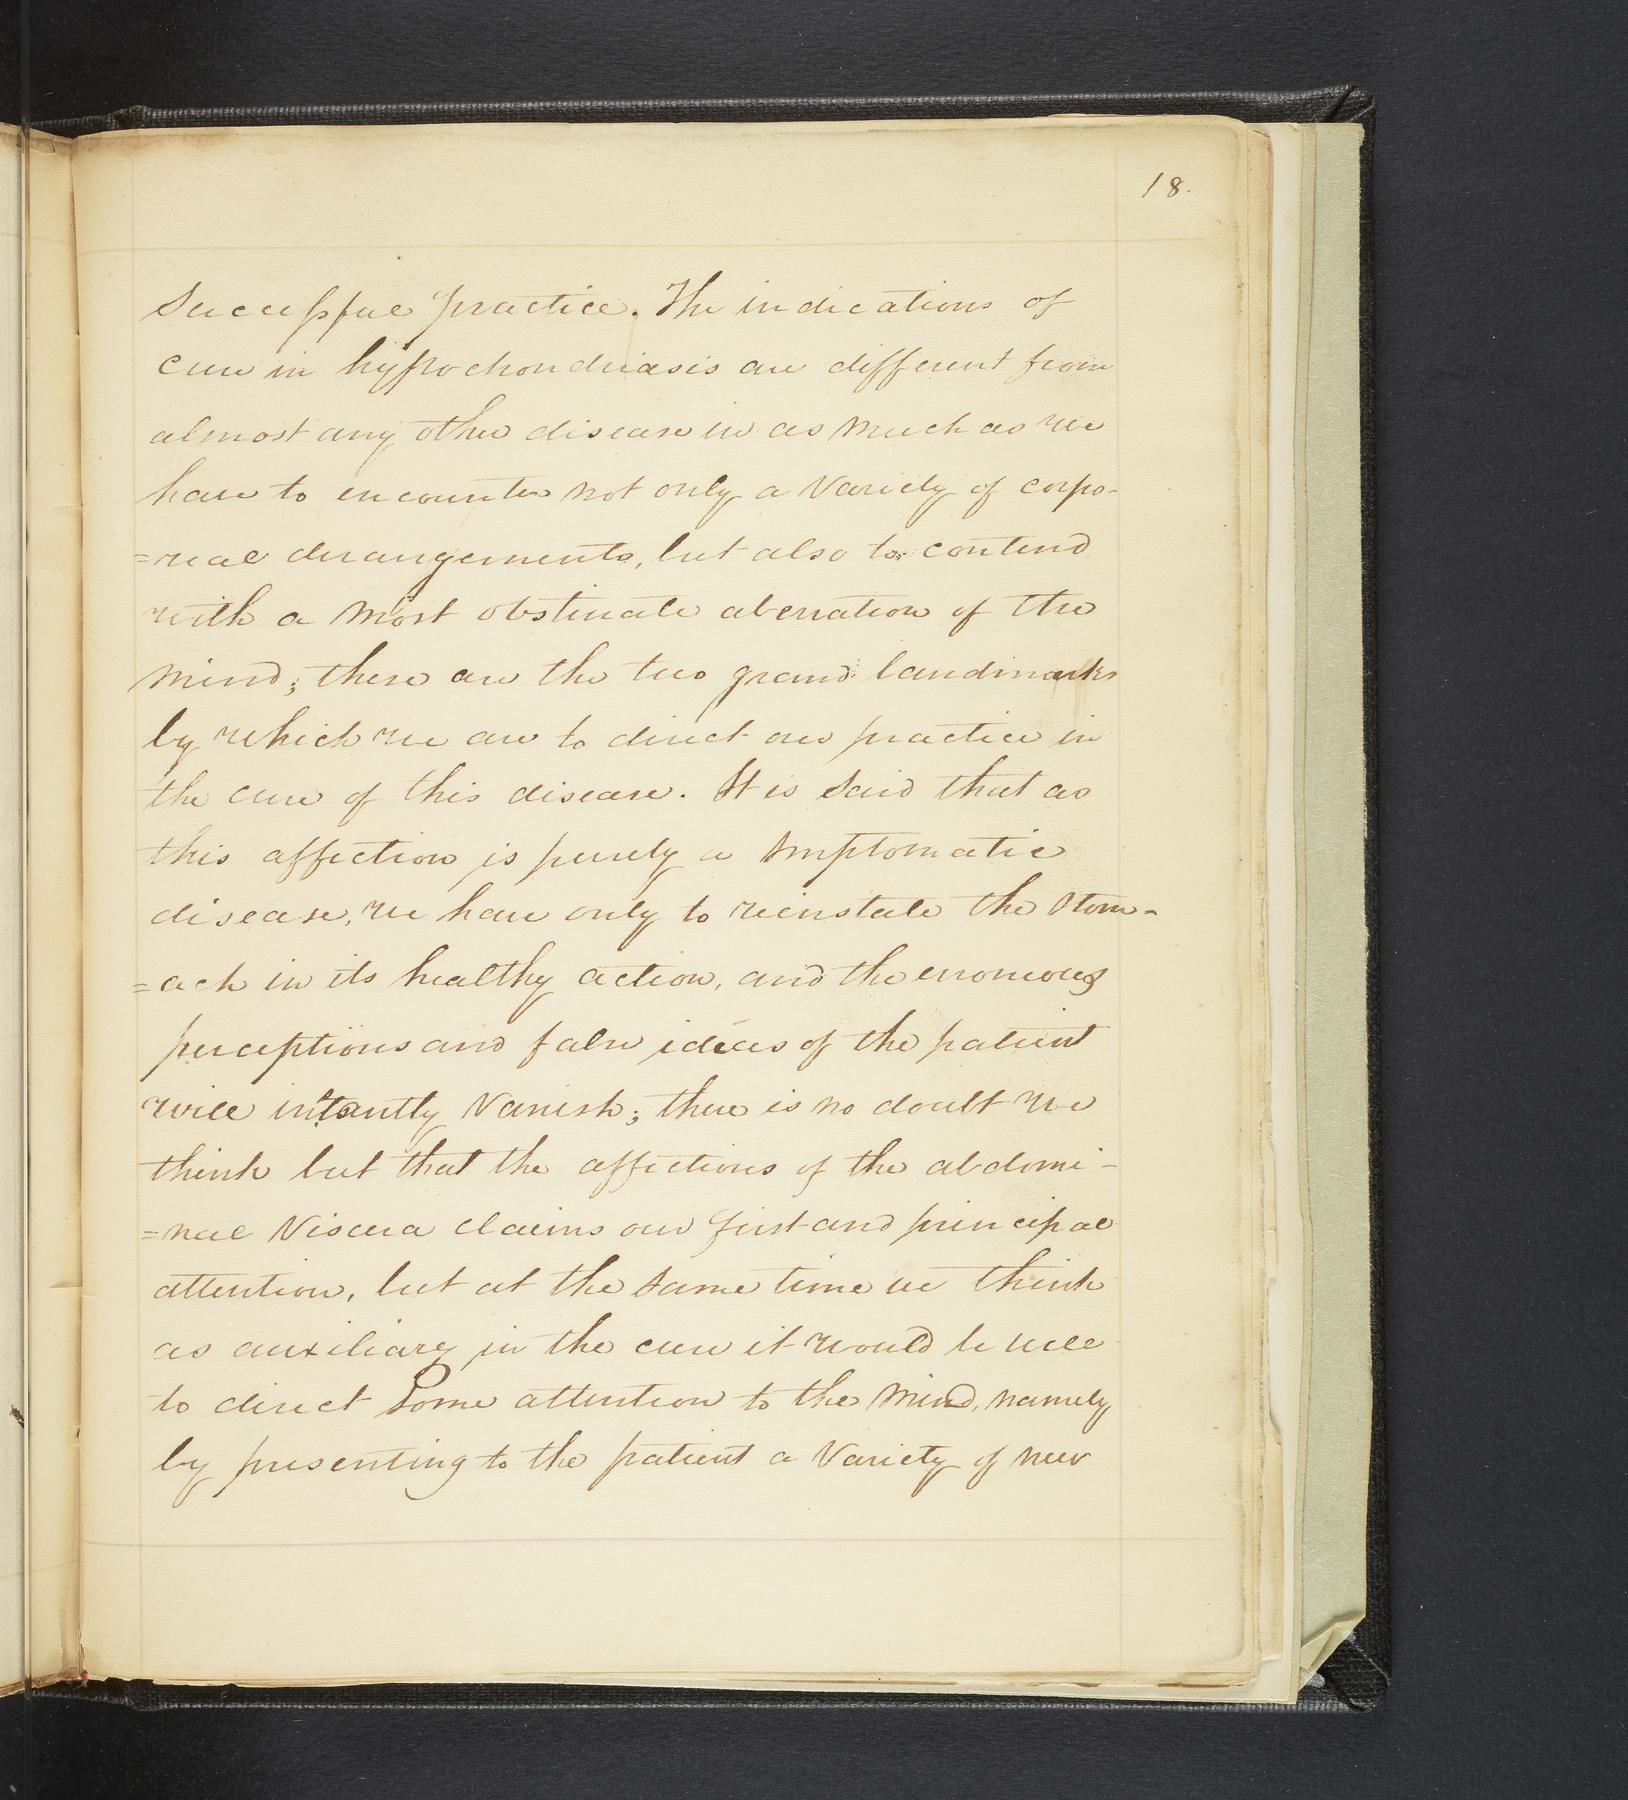 18.
Successful practice. The indications of
cure in hypochondriasis are different from
almost any other disease in as much as we
have to encounter not only a Variety of corpo-
=real derangements, but also to contend
with a most obstinate aberration of the
mind; these are the two grand landmarks
by which we are to direct our practice in
the cure of this disease. It is said that as
this affection is purely a smptomatic
disease, we have only to reinstate the stom-
=ach in its healthy action, and the erroneous
perceptions and false ideas of the patient
will intantly Vanish; there is no doubt we
think but that the affections of the abdomi-
=nal Viscera claims our first and principal
attention, but at the same time we think
as auxiliary in the cure it would be well
to direct some attention to the mind, namely
by presenting to the patient a Variety of new